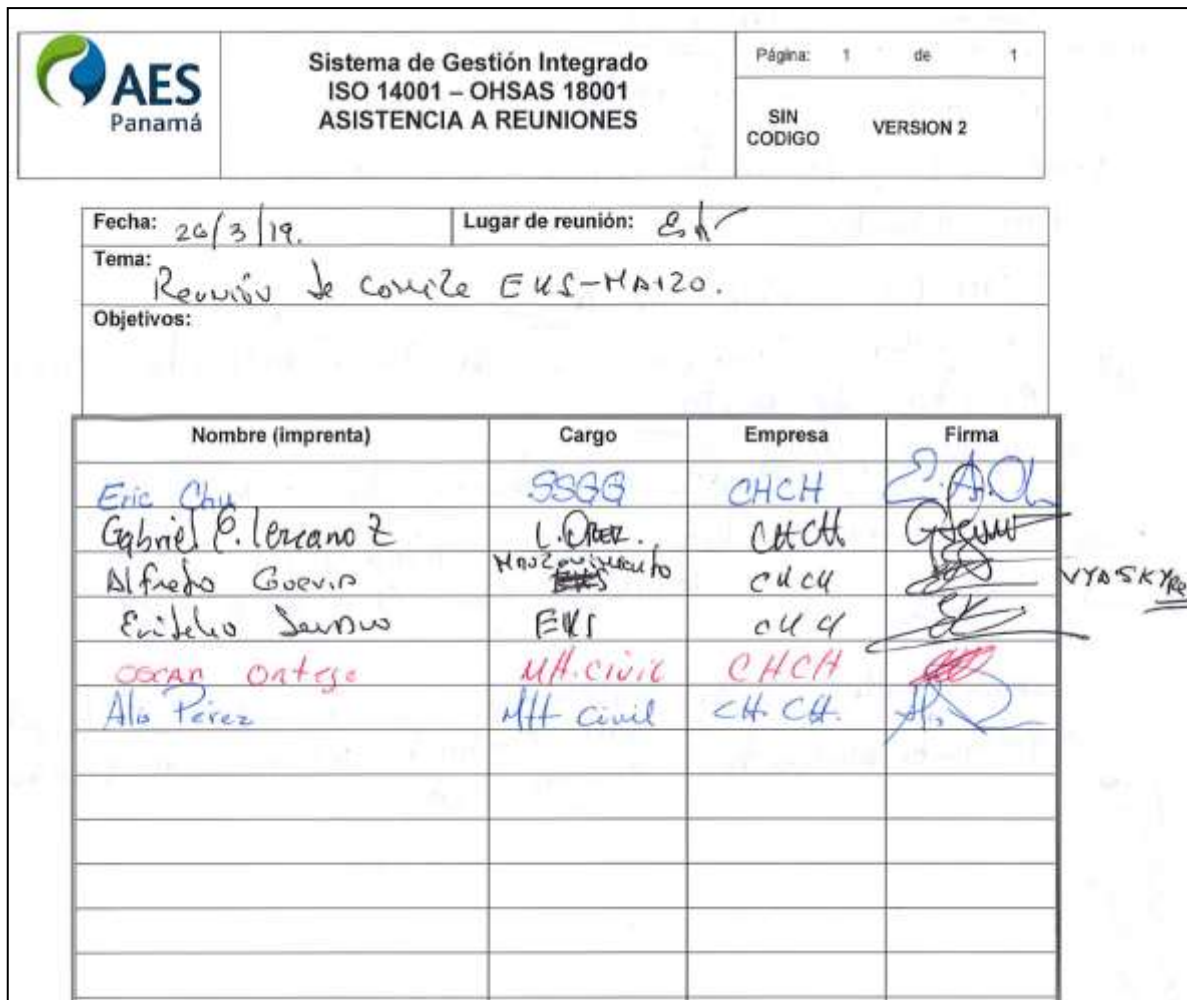 AES
Panamá
Sistema de Gestión Integrado
ISO 14001 – OHSAS 18001
ASISTENCIA A REUNIONES
Página: 1 de 1
SIN CODIGO VERSION 2
Fecha: 26/3/19. Lugar de reunión:
Tema:
Reunión de comite EHS-Marzo.
Objetivos:
Nombre (imprenta) Cargo Empresa Firma
Eric Chu SSGG CHCH
Gabriel E. Lezcano Z L. Oper. CHCH
Alfredo Guevara Mantenimiento CHCH
EHS CHCH
Oscar Ortega Mtt. Civil CHCH
Alis Pérez Mtt Civil CH. CH.